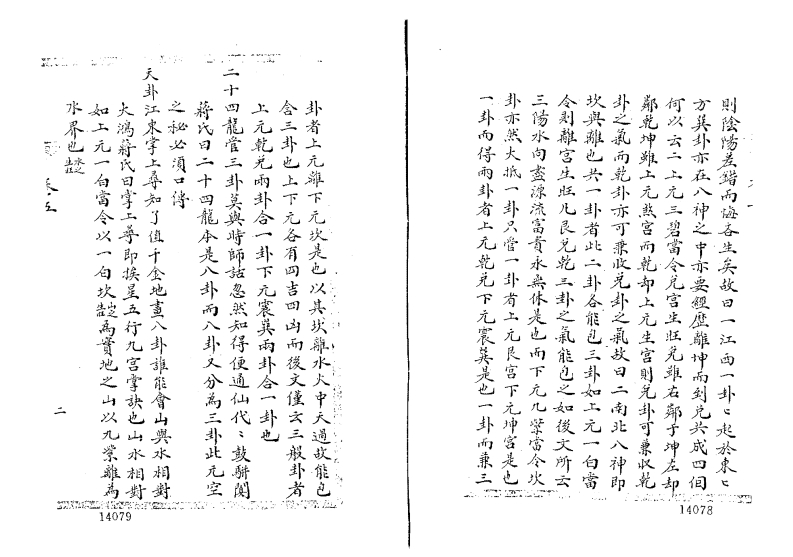 則陰陽差錯而悔吝生矣故曰一江西一卦〻起於東〻
方巽卦亦在八神之中亦要經歷離坤而到兌共成四個
何以云二上元三碧當令兌宮生旺兌雖右鄰于坤左却
鄰乾坤雖上元煞宮而乾却上元生宮則兌卦可兼收乾
卦之氣而乾卦亦可兼收兌卦之氣故曰二南北八神即
坎與離也共一卦者此二卦各能包三卦如上元一白當
令則離宮生旺凡艮兌乾三卦之氣能包之如後文所云
三陽水向盡源流富貴永無休是也而下元九紫當令坎
卦亦然大抵一卦只管一卦者上元艮宮下元坤宮是也
一卦而得兩卦者上元乾兌下元震巽是也一卦而兼三
14078
卦者上元離下元坎是也以其坎離水火中天過故能包
含三卦也上下元各有四吉四凶而後文僅云三般卦者
上元乾兌兩卦合一卦下元震巽兩卦合一卦也
二十四龍管三卦莫與時師話忽然知得便通仙代〻鼓駢闐
蔣氏曰二十四龍本是八卦而八卦又分為三卦此元空
之秘必須口傳
天卦江東掌上尋知了值千金地畫八卦誰能會山與水相對
大鴻蔣氏曰掌上尋即挨星五行九宮掌訣也山水相對
如上元一白當令以一白坎為實地之山以九紫離為
水界也水之生旺
卷五
二
14079